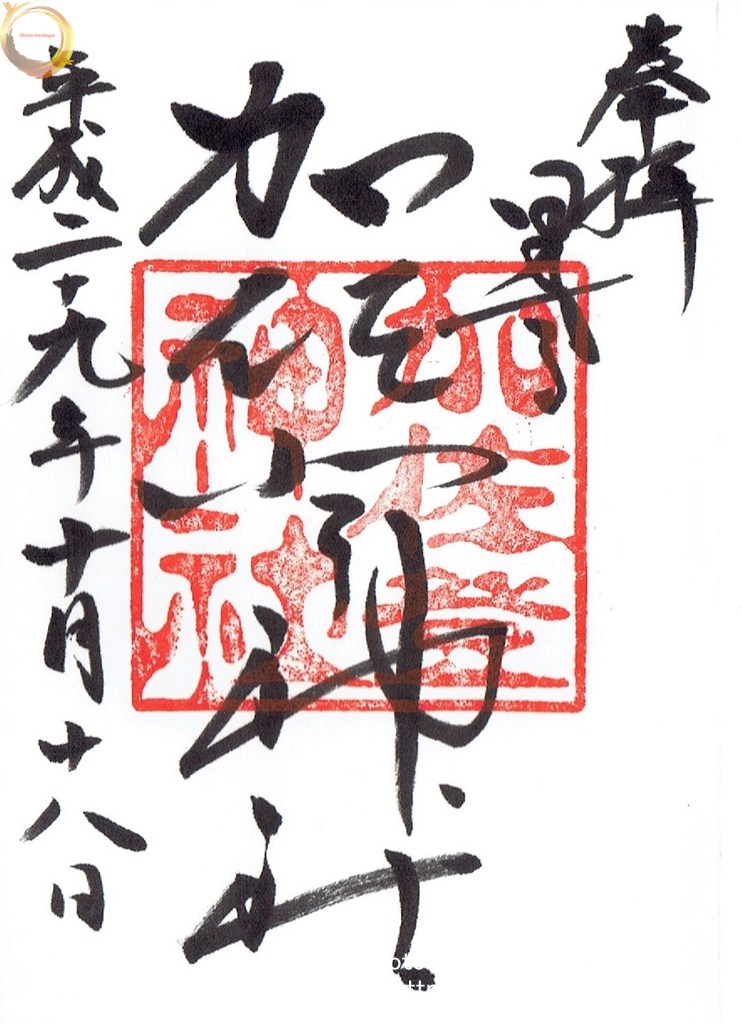 奉拝
加佐登神社
平成二十九年十月十八日
加佐登
神社
Shrine Heritager